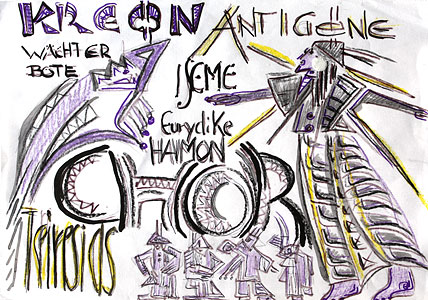 KREON ANTIGÖNE
WÄCHTER
BOTE
ISMENE
Eurydike
HAIMON
CHOR
Teiresias